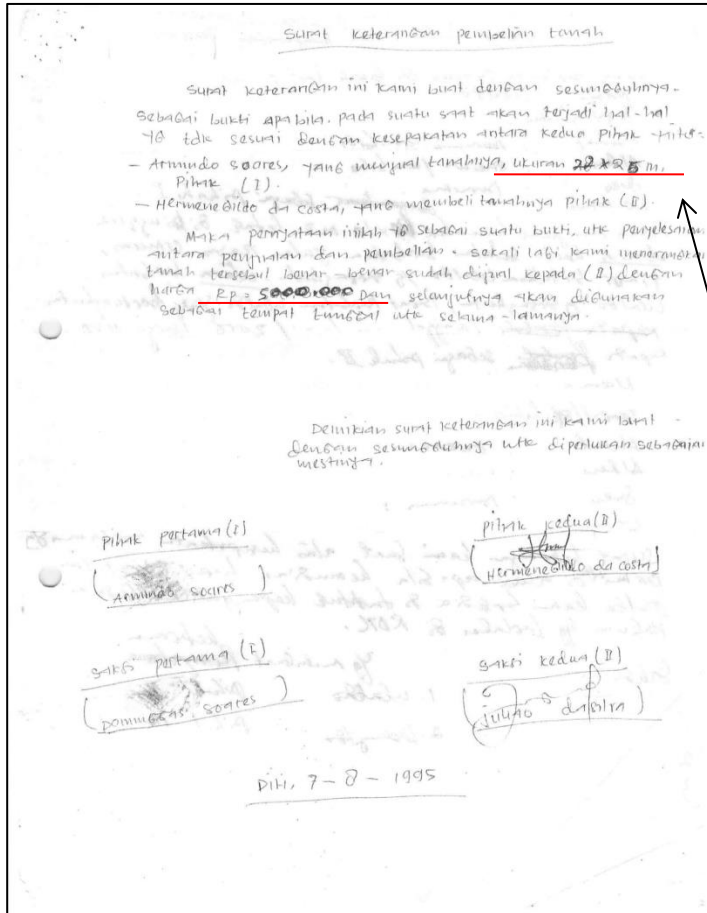 Surat keterangan pembelian tanah
Surat keterangan ini kami buat dengan sesungguhnya.
Sebagai bukti apabila. pada suatu saat akan terjadi hal-hal
yg tdk sesuai dengan kesepakatan antara kedua pihak
- Armindo Soares, yang menjual tanahnya, ukuran 22 x 25 m.
Pihak (I).
- Hermenegildo da costa, yang membeli tanahnya pihak (II).
Maka pernyataan inilah yg sebagai suatu bukti, utk penyelesaian
antara penjualan dan pembelian. sekali lagi kami menerangkan
tanah tersebut benar-benar sudah dijual kepada (II) dengan
harga Rp = 5000.000 Dan selanjutnya akan digunakan
sebagai tempat tunggal utk selama-lamanya.
Demikian surat keterangan ini kami buat
dengan sesungguhnya utk diperlukan sebagaimestinya.
pihak pertama (I)
(Armindo Soares)
pihak kedua (II)
(Hermenegildo da costa)
saksi pertama (I)
(Domingas. Soares)
saksi kedua (II)
(juliao dasilva)
Dili, 7-8-1995